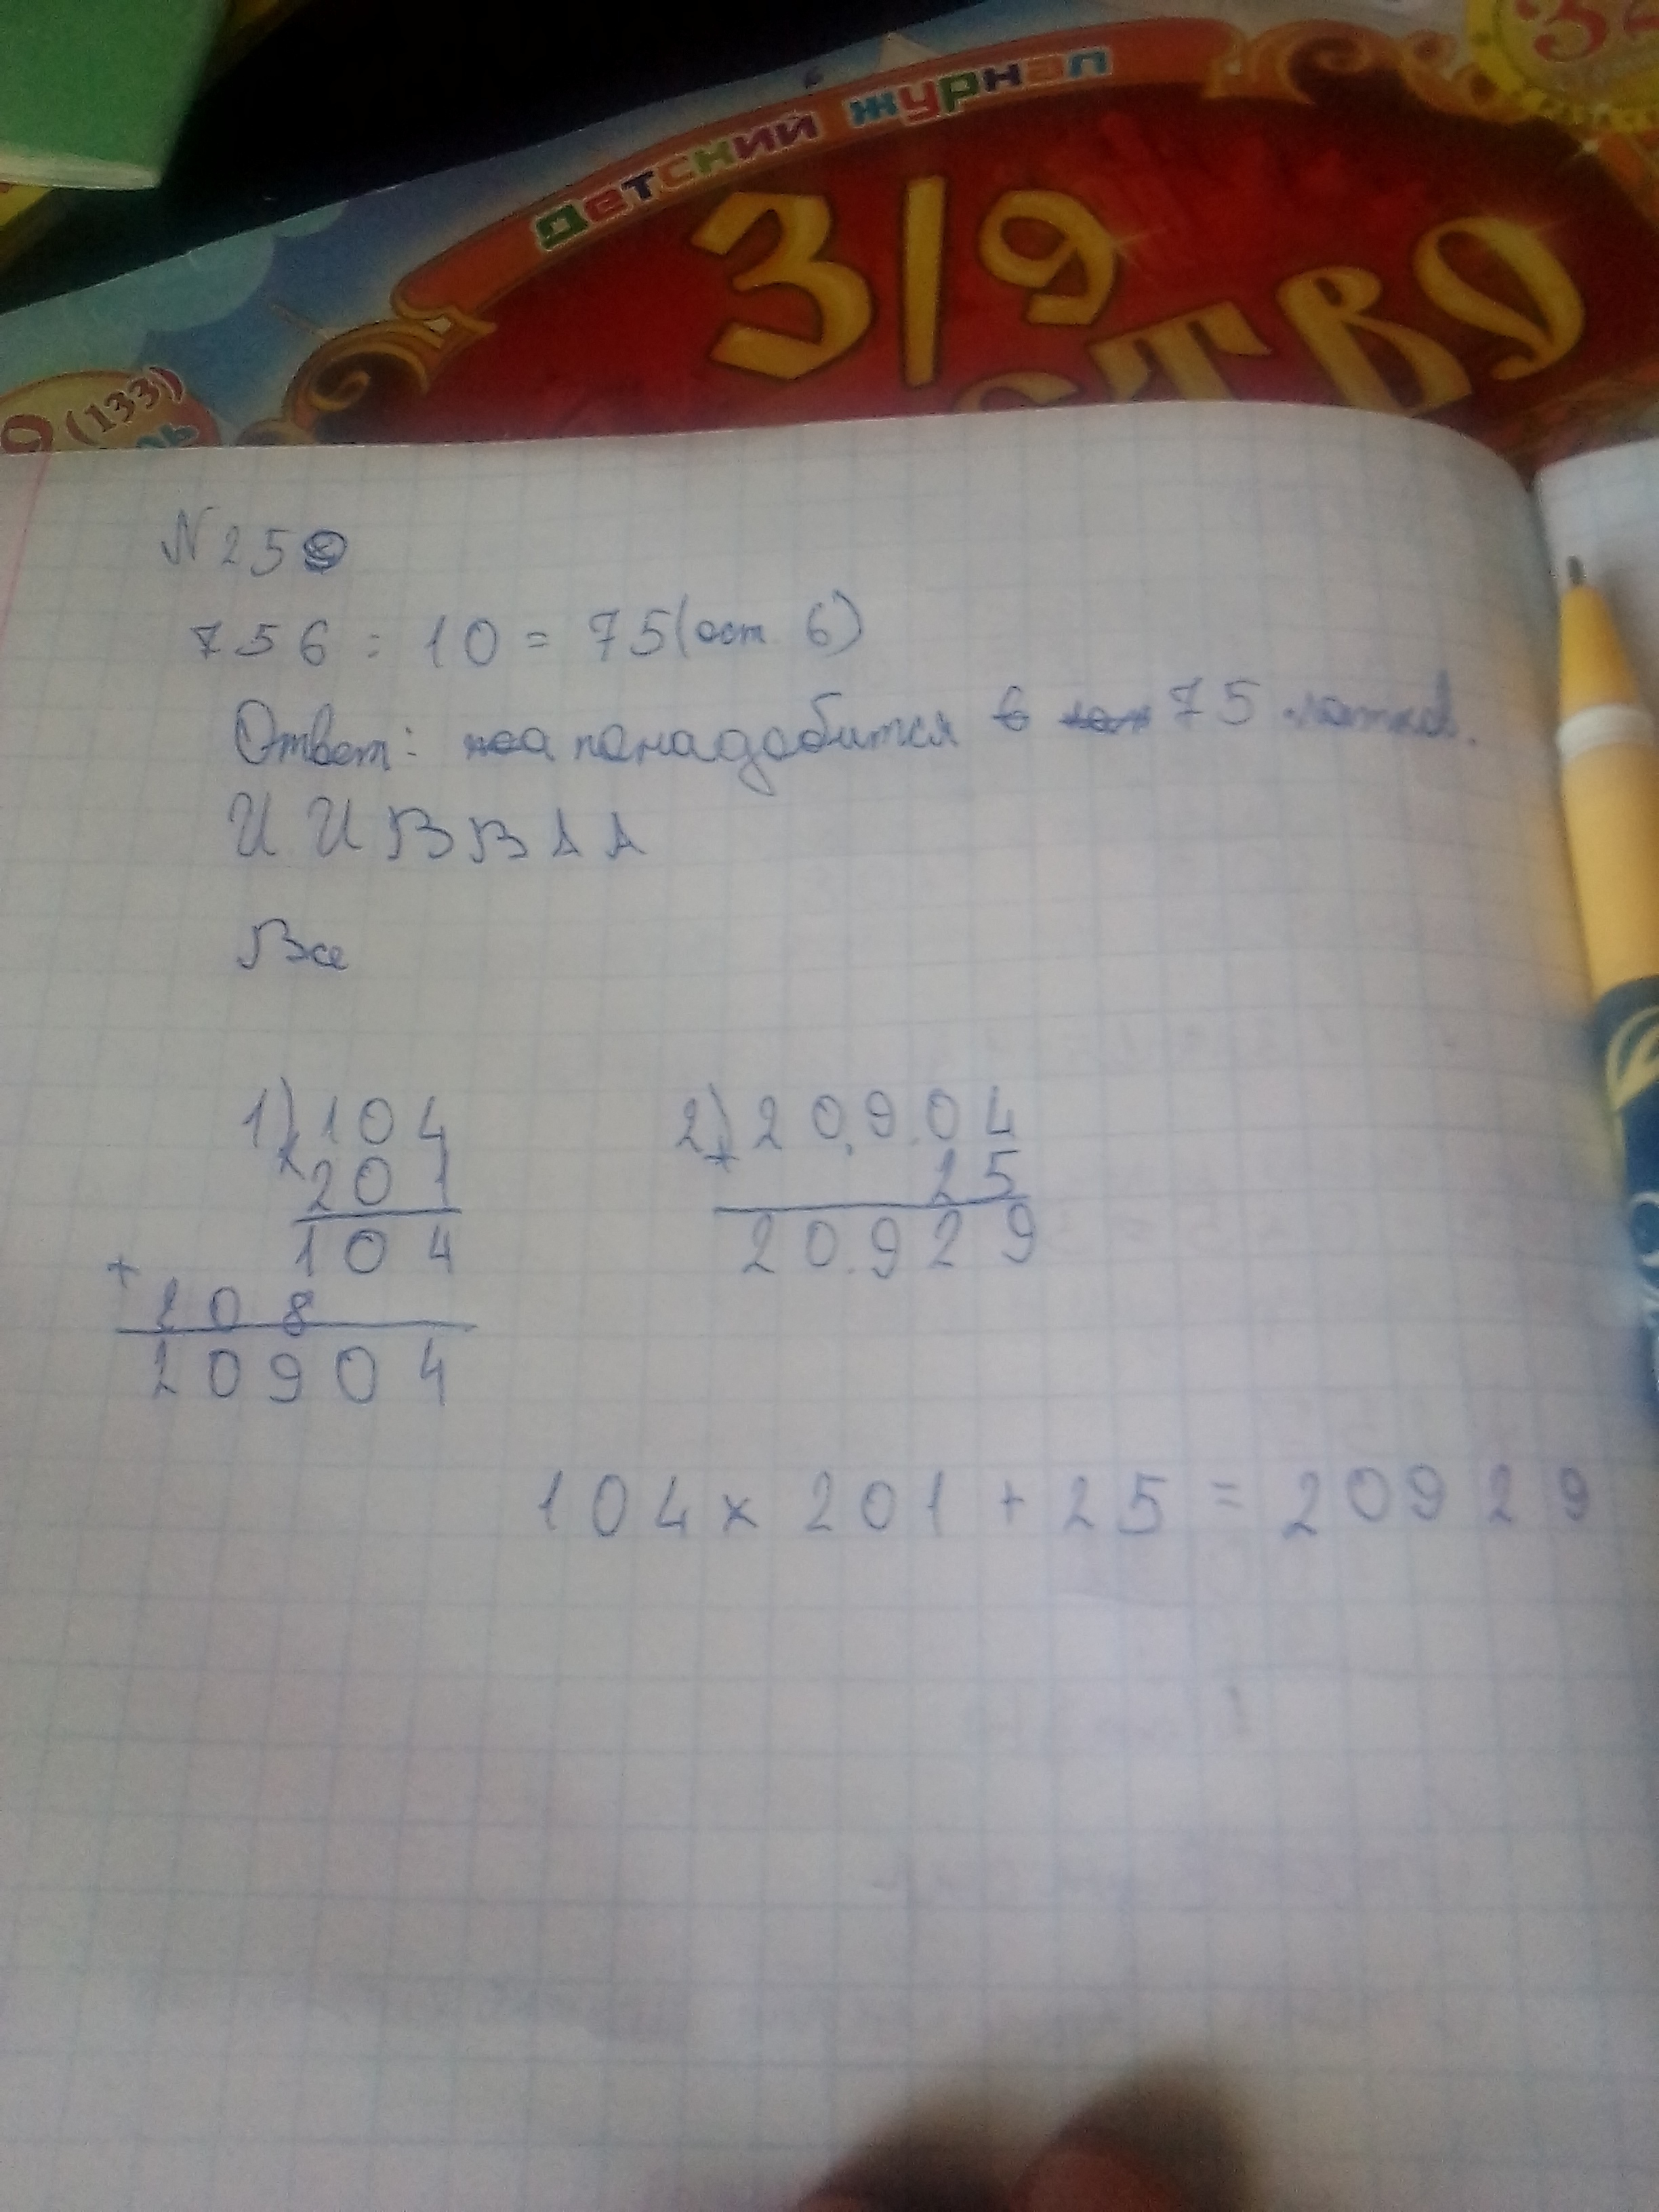 детский журнал
319
СТВО
9 (133)
N 25
756 : 10 = 75 (ост. 6)
Ответ: понадобится 75 лотков.
И И В В А А
Все
1) 104
×
201
104
+
208
20904
2) 20.9.04
+
25
20.929
104 × 201 + 25 = 20929